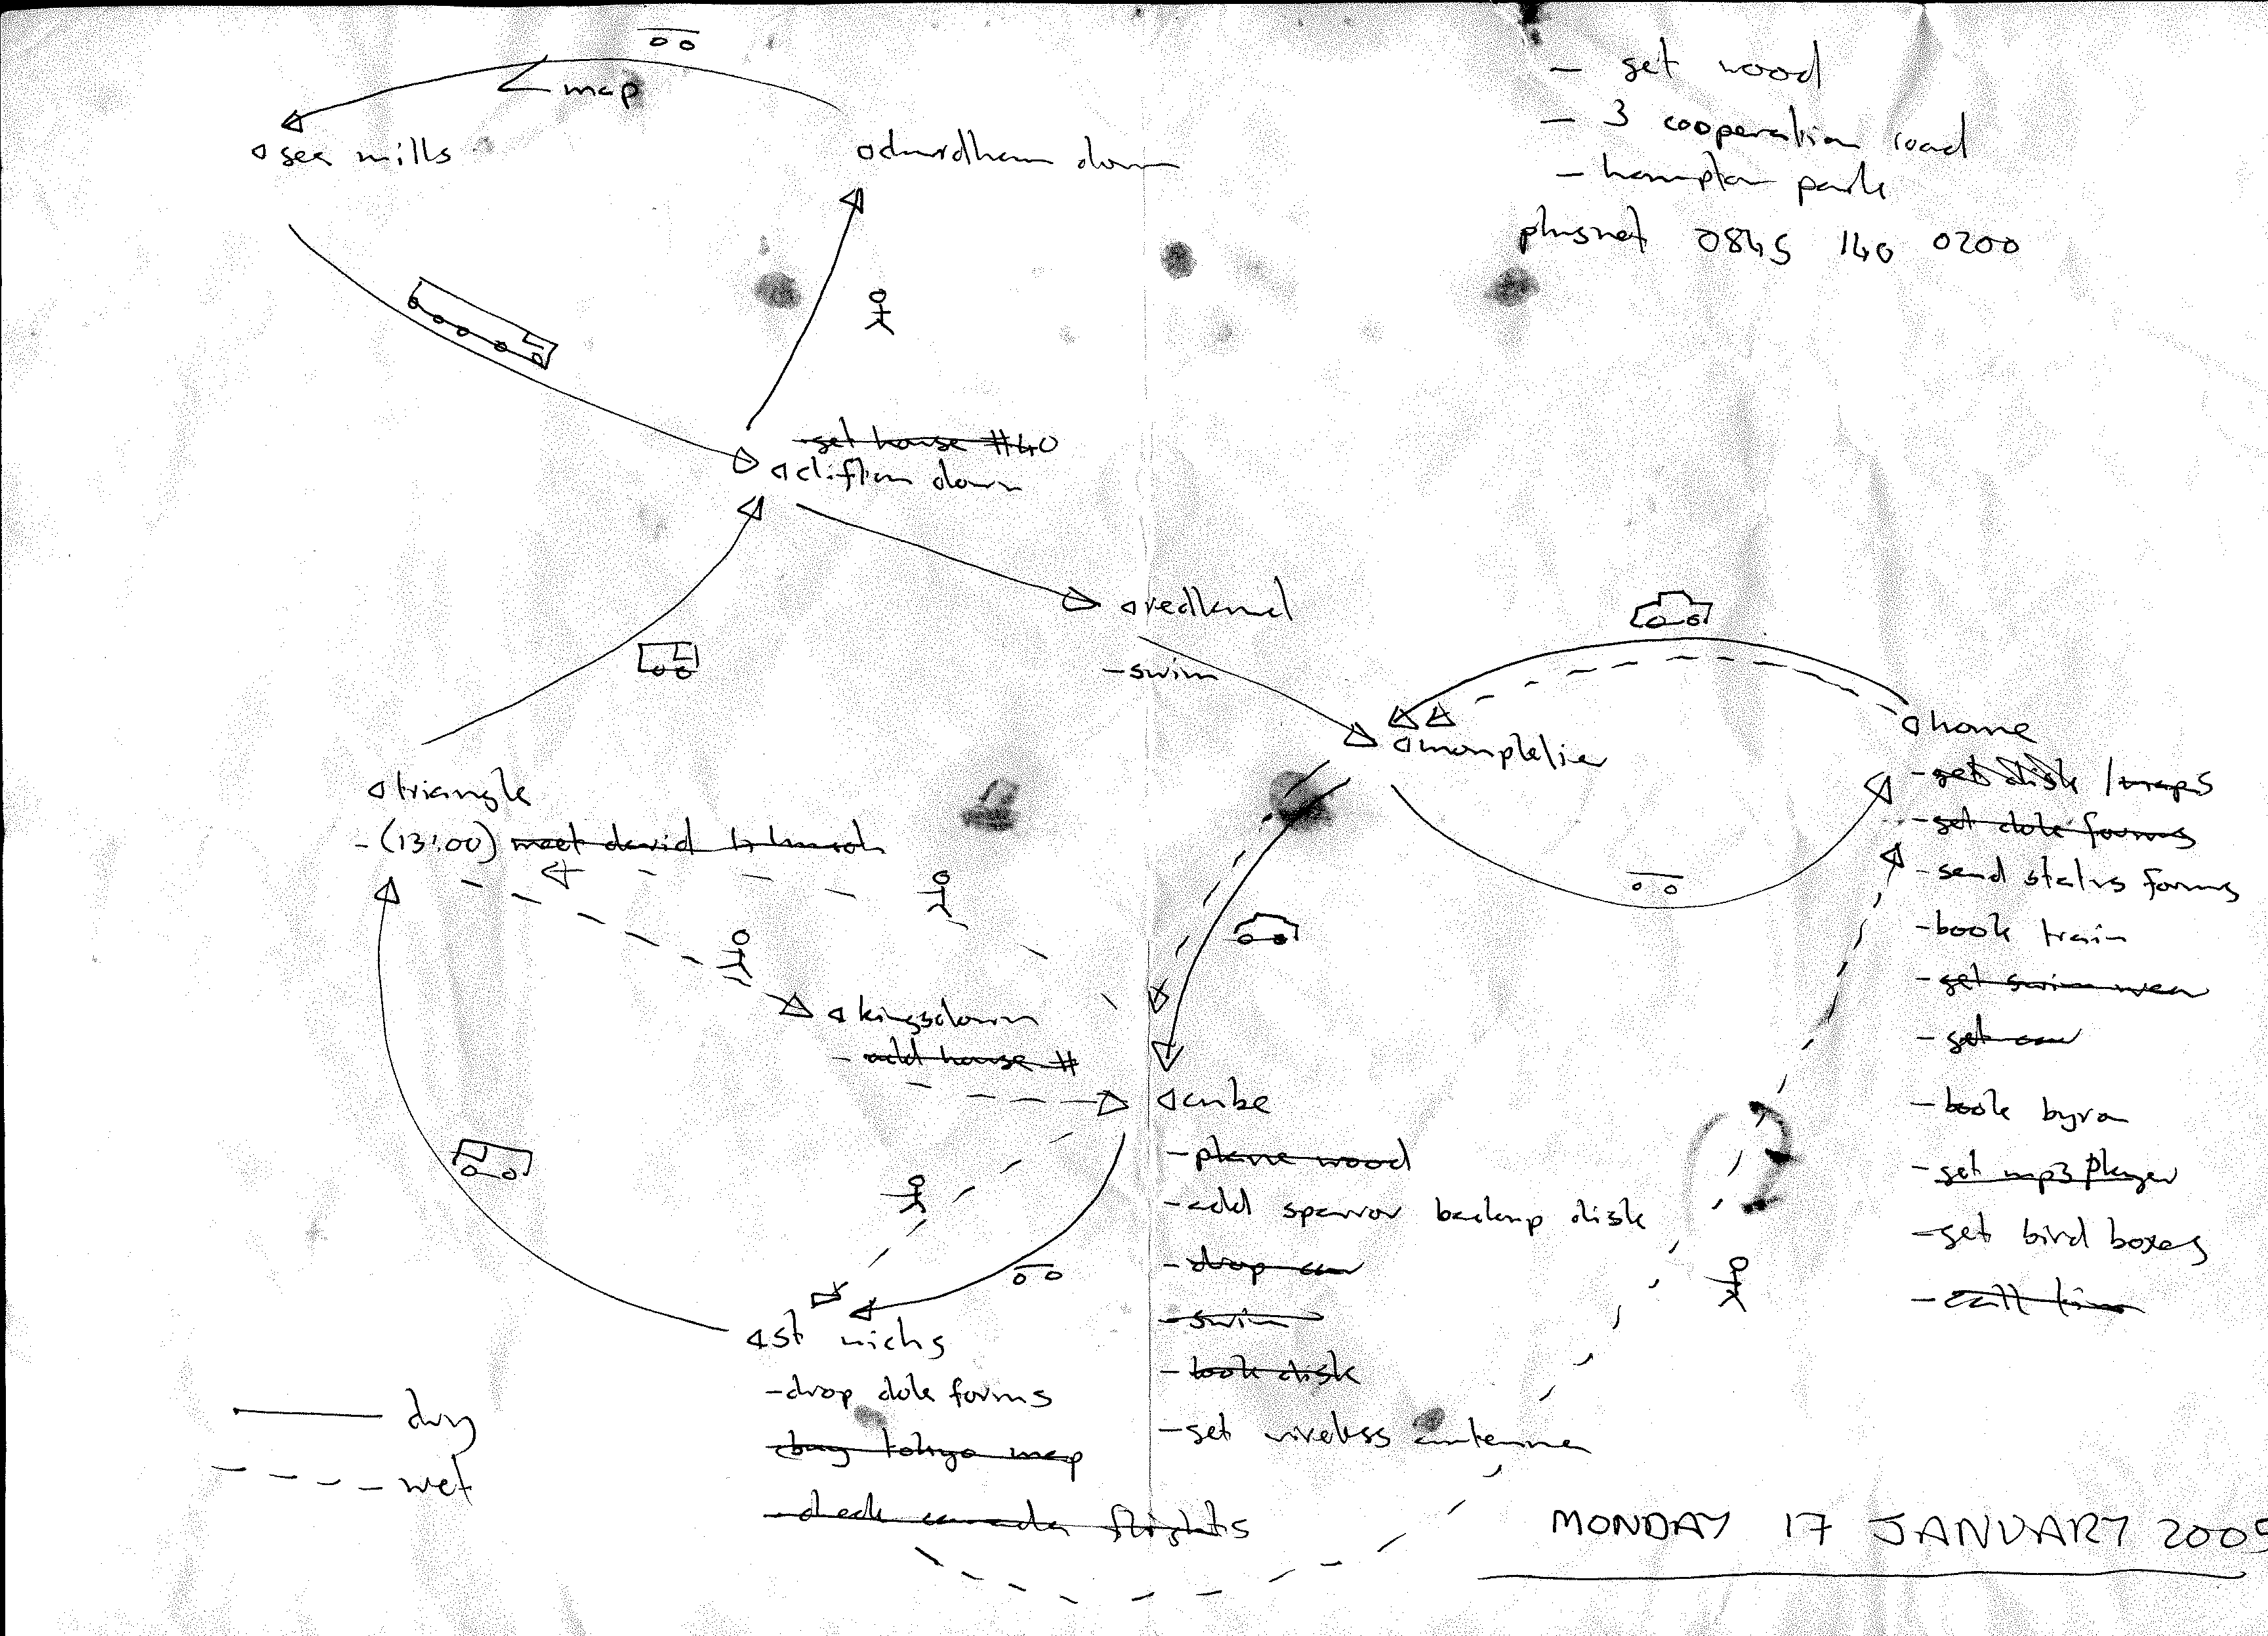 - get wood
- 3 cooperation road
- hampton park
plusnet 0845 140 0200
map
sea mills
durdham down
get house #40
clifton down
redland
- swim
montpelier
home
- get disk / maps
- get dole forms
- send status forms
- book train
- get swim wear
- get
- book byron
- get mp3 player
- get bird boxes
- call
triangle
- (13:00) meet david 4 lunch
kingsdown
- add house #
cube
- plane wood
- add sparror backup disk
- drop
- swim
- book disk
- get wireless antenna
st nichs
- drop dole forms
- buy tokyo map
- check canada flights
dry
wet
MONDAY 17 JANUARY 2005